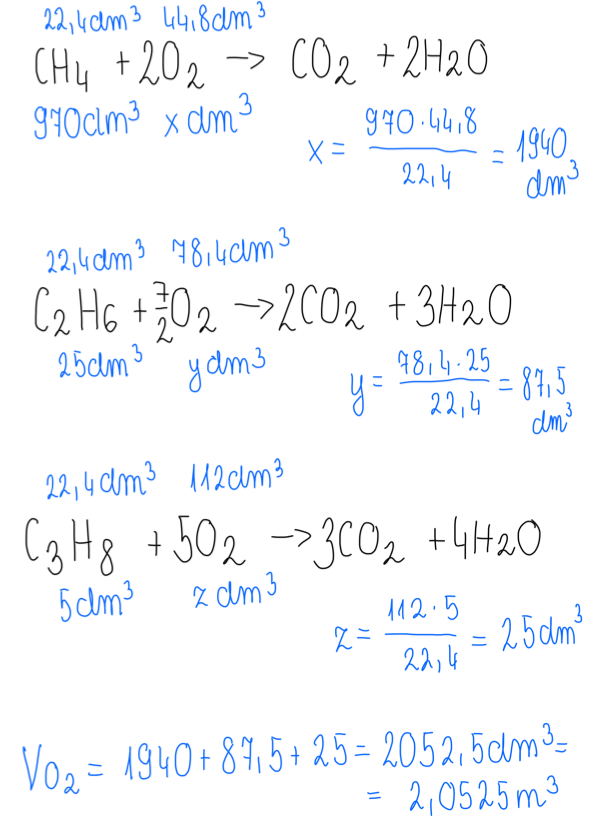 22,4dm³ 44,8dm³
CH₄ + 2O₂ → CO₂ + 2H₂O
970dm³ x dm³
x = 970·44,8 / 22,4 = 1940 dm³
22,4dm³ 78,4dm³
C₂H₆ + 7/2 O₂ → 2CO₂ + 3H₂O
25dm³ y dm³
y = 78,4·25 / 22,4 = 87,5 dm³
22,4dm³ 112dm³
C₃H₈ + 5O₂ → 3CO₂ + 4H₂O
5dm³ z dm³
z = 112·5 / 22,4 = 25dm³
Vo₂ = 1940 + 87,5 + 25 = 2052,5dm³ =
= 2,0525m³